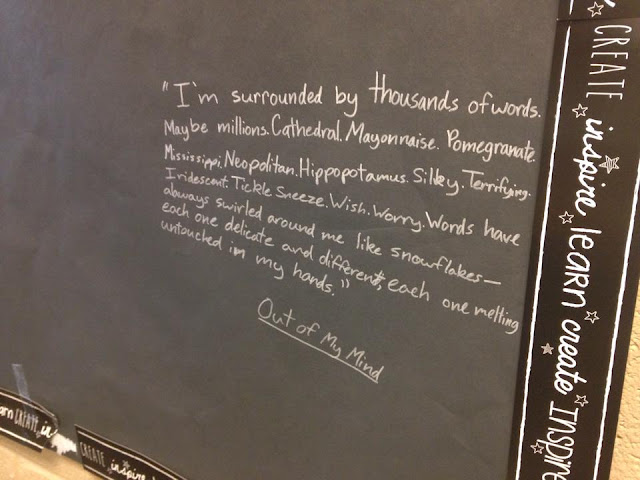 "I'm surrounded by thousands of words.
Maybe millions. Cathedral. Mayonnaise. Pomegranate.
Mississippi. Neopolitan. Hippopotamus. Silky. Terrifying.
Iridescent. Tickle. Sneeze. Wish. Worry. Words have
always swirled around me like snowflakes—
each one delicate and different, each one melting
untouched in my hands."
Out of My Mind
CREATE inspire learn create INSPIRE
arn CREATE in
CREATE inspire